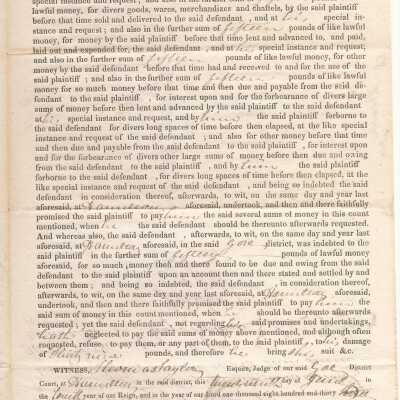 special instance and request; and also in the further sum of fifteen pounds of like lawful
money, for divers goods, wares, merchandizes and chattels, by the said plaintiff
before that time sold and delivered to the said defendant , and at his special in-
stance and request; and also in the further sum of fifteen pounds of like lawful
money, for money by the said plaintiff before that time lent and advanced to, and paid,
laid out and expended for, the said defendant , and at his special instance and request;
and also in the further sum of fifteen pounds of like lawful money, for other
money by the said defendant before that time had and received to and for the use of the
said plaintiff ; and also in the further sum of fifteen pounds of like lawful
money for so much money before that time and then due and payable from the said de-
fendant to the said plaintiff , for interest upon and for the forbearance of divers large
sums of money before then lent and advanced by the said plaintiff to the said defendant
at his special instance and request, and by him the said plaintiff forborne to
the said defendant for divers long spaces of time before then elapsed, at the like special
instance and request of the said defendant , and also for other money before that time
and then due and payable from the said defendant to the said plaintiff , for interest upon
and for the forbearance of divers other large sums of money before then due and owing
from the said defendant to the said plaintiff , and by him the said plaintiff
forborne to the said defendant , for divers long spaces of time before then elapsed, at the
like special instance and request of the said defendant , and being so indebted the said
defendant in consideration thereof, afterwards, to wit, on the same day and year last
aforesaid, at Dundas aforesaid, undertook, and then and there faithfully
promised the said plaintiff to pay him the said several sums of money in this count
mentioned, when he the said defendant should be thereunto afterwards requested.
And whereas also, the said defendant , afterwards, to wit, on the same day and year last
aforesaid, at Dundas aforesaid, in the said Gore district, was indebted to the
said plaintiff in the further sum of fifteen pounds of lawful money
aforesaid, for so much money then and there found to be due and owing from the said
defendant to the said plaintiff upon an account then and there stated and settled by and
between them; and being so indebted, the said defendant in consideration thereof,
afterwards, to wit, on the same day and year last aforesaid, at Dundas aforesaid,
undertook, and then and there faithfully promised the said plaintiff to pay him the
said sum of money in this count mentioned, when he should be thereunto afterwards
requested; yet the said defendant , not regarding his promises and undertakings,
hath neglected to pay the said sums of money above mentioned, and although often
requested, refuse to pay them, or any part of them, to the said plaintiff , to his damage
of pounds, and therefore he brings his suit &c.
WITNESS, Thomas Taylor Esquire, Judge of our said Gore District
Court, at in the said district, this day of
in the year of our Reign, and in the year of our Lord one thousand eight hundred and thirty